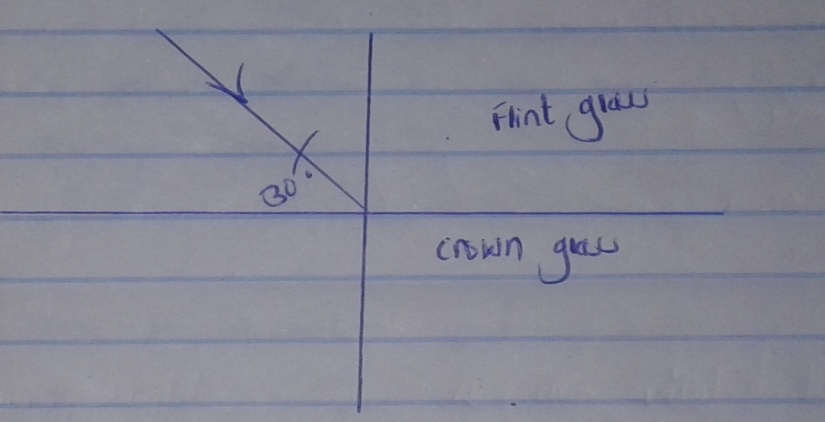 Flint glass
30°
crown glass